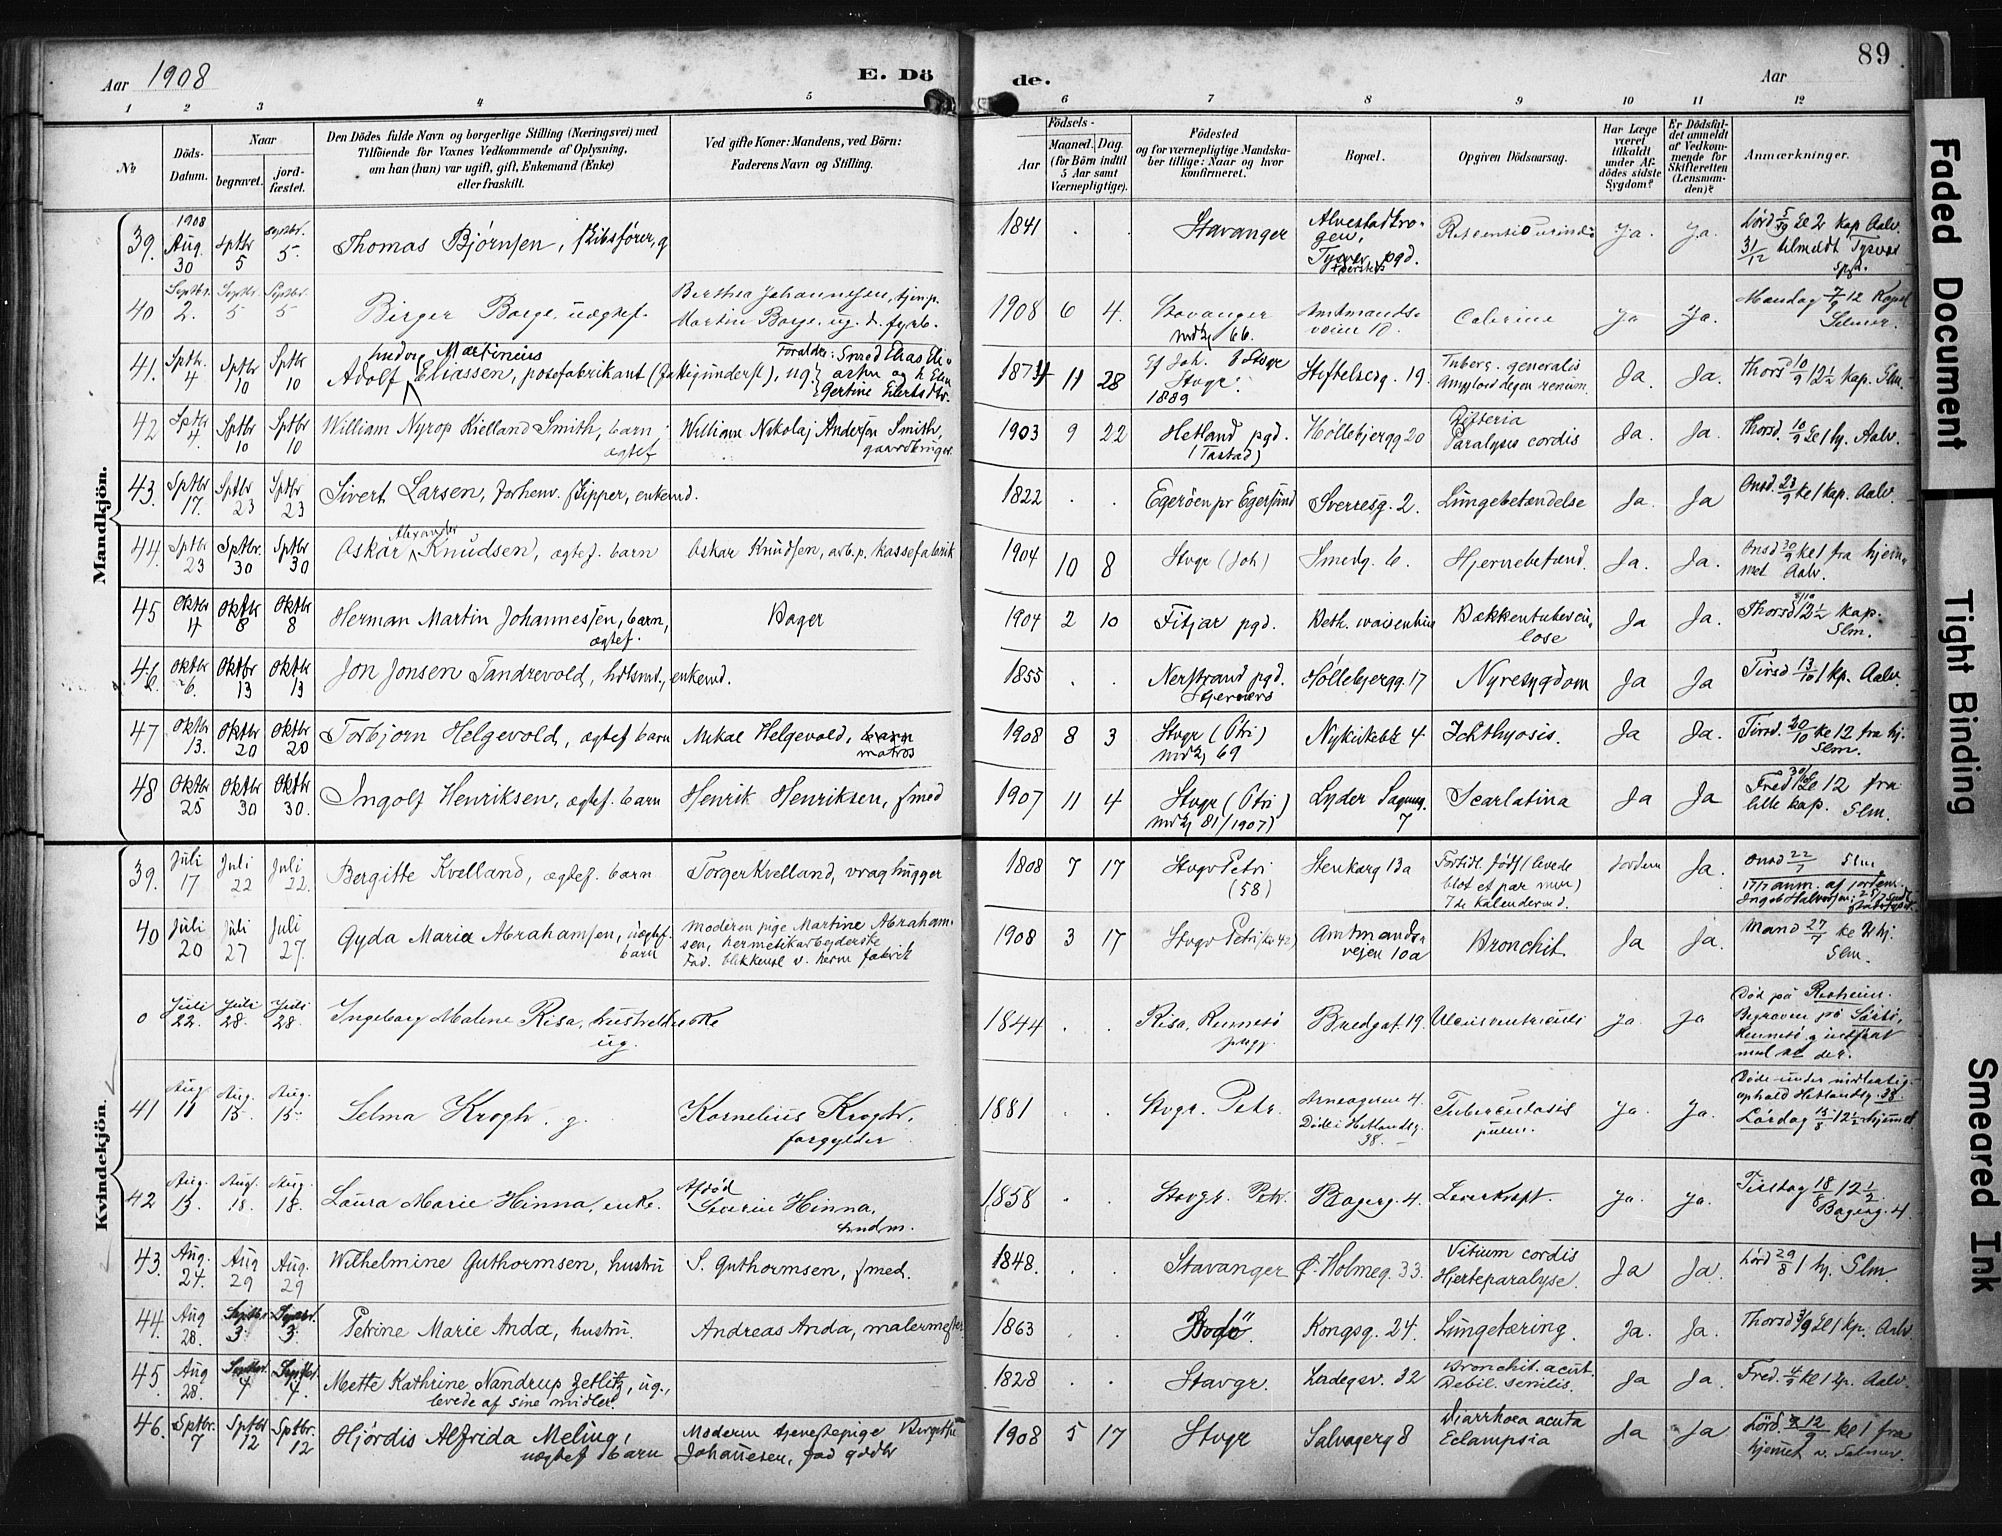 Aar 1908
E. Dö
de.
Aar
89
1 2 3 4 5 6 7 8 9 10 11 12
No
Döds-
Datum.
Naar
begravet.
jord-
fæstet.
Den Dödes fulde Navn og borgerlige Stilling (Næringsvei) med
Tilföiende for Voxnes Vedkommende af Oplysning,
om han (hun) var ugift, gift, Enkemand (Enke)
eller fraskilt.
Ved gifte Koner: Mandens, ved Börn:
Faderens Navn og Stilling.
Födsels-
Aar
Maaned. Dag.
(for Börn indtil
5 Aar samt
Værnepligtige).
Födested
og for værnepligtige Mandska-
ber tillige: Naar og hvor
konfirmeret.
Bopæl.
Opgiven Dödsaarsag.
Har Læge
været
tilkaldt
under Af-
dödes sidste
Sygdom?
Er Dödsfal-
det anmeldt
af Vedkom-
mende for
Skifteretten
(Lensman-
den)?
Anmærkninger.
Mandkjön.
39. 1908 Aug 30 Sptbr 5 Septbr. 5. Thomas Bjørnsen, skibsfører, g 1841 . . Stavanger Ja. Ja.
Tysvær pgd.
40 Septbr. 2. Septbr. 5 Septbr. 5 Birger Borge, uægtef. Berthea Johannessen, tjenp.
Martin Borge, ug. d. fyrb. 1908 6 4. Stavanger Amtmands-
veien Ja Ja. Mandag 7/9 12 Kapel
Selmer.
41. Sptbr. 4 Sptbr 10 Sptbr 10 Adolf Martinius Eliassen, posefabrikant 11 28 Stvgr.
1889 Stiftelsesg. 19. Tuberc. generalis
Ja. Ja. Thors 10/9 12½ kap. Slm.
Gertine
42 Sptbr 4. Sptbr 10 Sptbr 10 William Nyrop Kielland Smith, barn
ægtef William Nikolaj Andersen Smith,
gaardbruger 1903 9 22 Hetland pgd.
(Tastad) Høllebjergg 20 Difteria
Paralysis cordis Ja. Ja. Thorsd. 10/9 kl 1 hj. Aalv.
43 Sptbr 17. Sptbr 23 Sptbr 23 Sivert Larsen, forhenv. skipper, enkemd. 1822 . . Egerøen pr Egersund Sverresg. 2. Lungebetændelse Ja. Ja Onsd. 23/9 kl 1 kap. Aalv.
44. Sptbr 23 Sptbr. 30 Sptbr. 30 Oskar Alexander Knudsen, ægtef. barn Oskar Knudsen, arb. p. kassefabrik 1904 10 8 Stvgr (Joh) Smedg. 6. Hjernebetænd. Ja. Ja. Onsd 30/9 kl 1 fra hjem-
met Aalv.
45 Oktbr 4 Oktbr 8 Oktbr 8 Herman Martin Johannessen, barn,
ægtef. Bager 1904 2 10 Fitjar pgd. Beth. waisenhus Bækkentubercu-
lose Ja Ja Thorsd 8/10 12½ kap.
Slm.
46. Oktbr 6. Oktbr 13 Oktbr 13 Jon Jonsen Tandrevold, hdlsmd., enkemd. 1855 . . Nerstrand pgd. Høllebjergg. 17 Nyresygdom Ja Ja Tirsd 13/10 1 kp. Aalv.
47 Oktbr 13. Oktbr 20 Oktbr 20 Torbjørn Helgevold, ægtef barn Mikal Helgevold, barn
matros 1908 8 3 Stvgr (Ptri)
69 Nykirkebk 4 Ichthyosis. Ja Ja. Tirsd. 20/10 kl 12 fra hj.
Slm.
48 Oktbr 25 Oktbr 30 Oktbr 30. Ingolf Henriksen, ægtef. barn Henrik Henriksen, smed 1907 11 4 Stvgr (Ptri)
81/1907) Lyder Sagensg.
7 Scarlatina Ja Ja Fred 30/10 kl 12 fra
lille kap. Slm.
Kvindekjön.
39. Juli 17 Juli 22 Juli 22. Bergitte Kvelland, ægtef. barn Torger Kvelland, vraghugger 1808 7 17 Stvgr Petri
(58) Stenkarg 13a Fortidl. født (levede
blot et par min)
7de Kalendermd. Jordem Ja. Onsd 22/7 Slm
17/7 anm. af jordem.
40 Juli 20 Juli 27 Juli 27. Gyda Marie Abrahamsen, uægtef.
barn Moderen pige Martine Abraham-
sen, hermetikarbejderske
Fad. blikkensl v. herm fabrik 1908 3 17 Stvgr Petri Amtmands-
vejen 10a Bronchit Ja Ja. Mand 27/7 kl 2 hj.
Slm.
0 Juli 22. Juli 28 Juli 28. Ingeborg Malene Risa, husholderske
ug. 1844 . . Risa, Rennesø
Bredgat. 19. Ulcus ventriculi Ja. Ja Død på
Begraven på
41 Aug 11 Aug. 15. Aug. 15 Selma Krogh. g. Kornelius Krogh,
forgylder 1881 . . Stvgr. Petr. 4.
Døde i Hetlandsg.
38. Tuberculosis
pulm. Ja. Ja. Døde under midlertidig
ophold Hetlandsg. 38.
Lørdag 15/8 12½ hjemmet
42 Aug. 13. Aug. 18. Aug. 18. Laura Marie Hinna, enke. Afdød
Severin Hinna,
1858 . . Stavgr. Petr. Bagerg. 4. Leverkraft. Ja. Ja. Tirsdag 18/8 12½
Bagerg. 4
43. Aug. 24. Aug 29 Aug. 29 Wilhelmine Guthormsen, hustru S. Guthormsen, smed. 1848. . . Stavanger Ø. Holmeg. 33. Vitium cordis
Hjerteparalyse. Ja Ja. Lørd 29/8 1 hj. Slm.
44. Aug 28. Septbr 3 Septbr. 3. Petrine Marie Anda, hustru. Andreas Anda, malermester 1863 . . Bodø Kongsg. 24. Lungetæring. Ja. Ja. Thorsd 3/9 kl 1 kp. Aalv
45. Aug 28. Septbr. 4 Septbr. 4. Mette Kathrine Nandrup Zetlitz, ug.,
levede af sine midler. 1828 . . Stavgr. Ladegsv. 32 Bronchit. acut.
Debil. senilis. Ja Ja. Fred. 4/9 kl 1 kp. Aalv.
46. Sptbr. 7 Sptbr 12 Sptbr. 12 Hjördis Alfrida Meling,
uægtef barn Moderen tjenestepige Bergithe
Johannesen, fad gdbr 1908 5 17 Stvgr Salvagerg 8 Diarrhoea acuta
Eclampsia Ja Ja Lörd. 12/9 kl 1 fra
hjemmet v. Selmer
Faded Document
Tight Binding
Smeared Ink